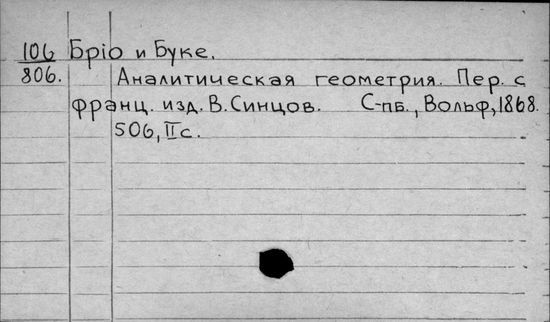 106 Бріо и Буке.
806. Аналитическая геометрия. Пер. с
франц. изд. В. Синцов. С-пб., Вольф, 1868.
506, II с.